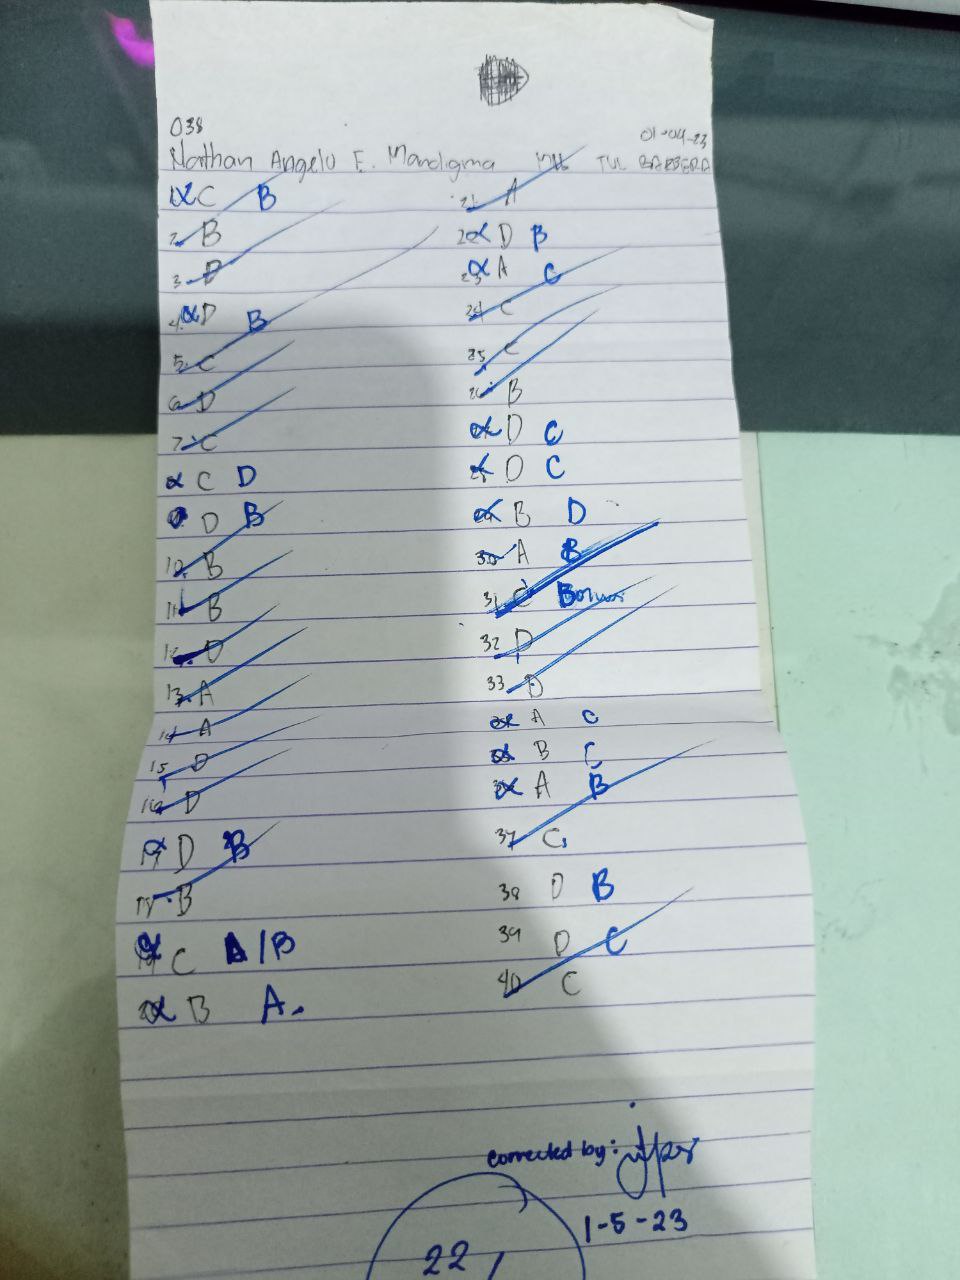 038
01-04-23
Nathan Angelo E. Mandigma
TUL BARBERA
1. C B
2. B
3. D
4. D B
5. C
6. D
7. C
C D
D B
10. B
11. B
12. D
13. A
14. A
15. D
16. D
17. D B
18. B
19 C A/B
B A.
21 A
22 D B
23 A C
24 C
25. C
26 B
D C
28 D C
29 B D
30 A B
31 C Bonus
32 D
33 D
A C
B C
A B
37 C
38 D B
39 D C
40 C
corrected by:
1-5-23
22